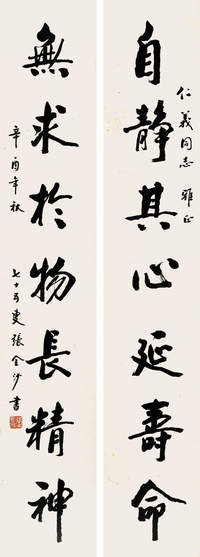 自静其心延壽命
仁義同志雅正
無求於物長精神
辛酉年秋
七十五叟張金沙書